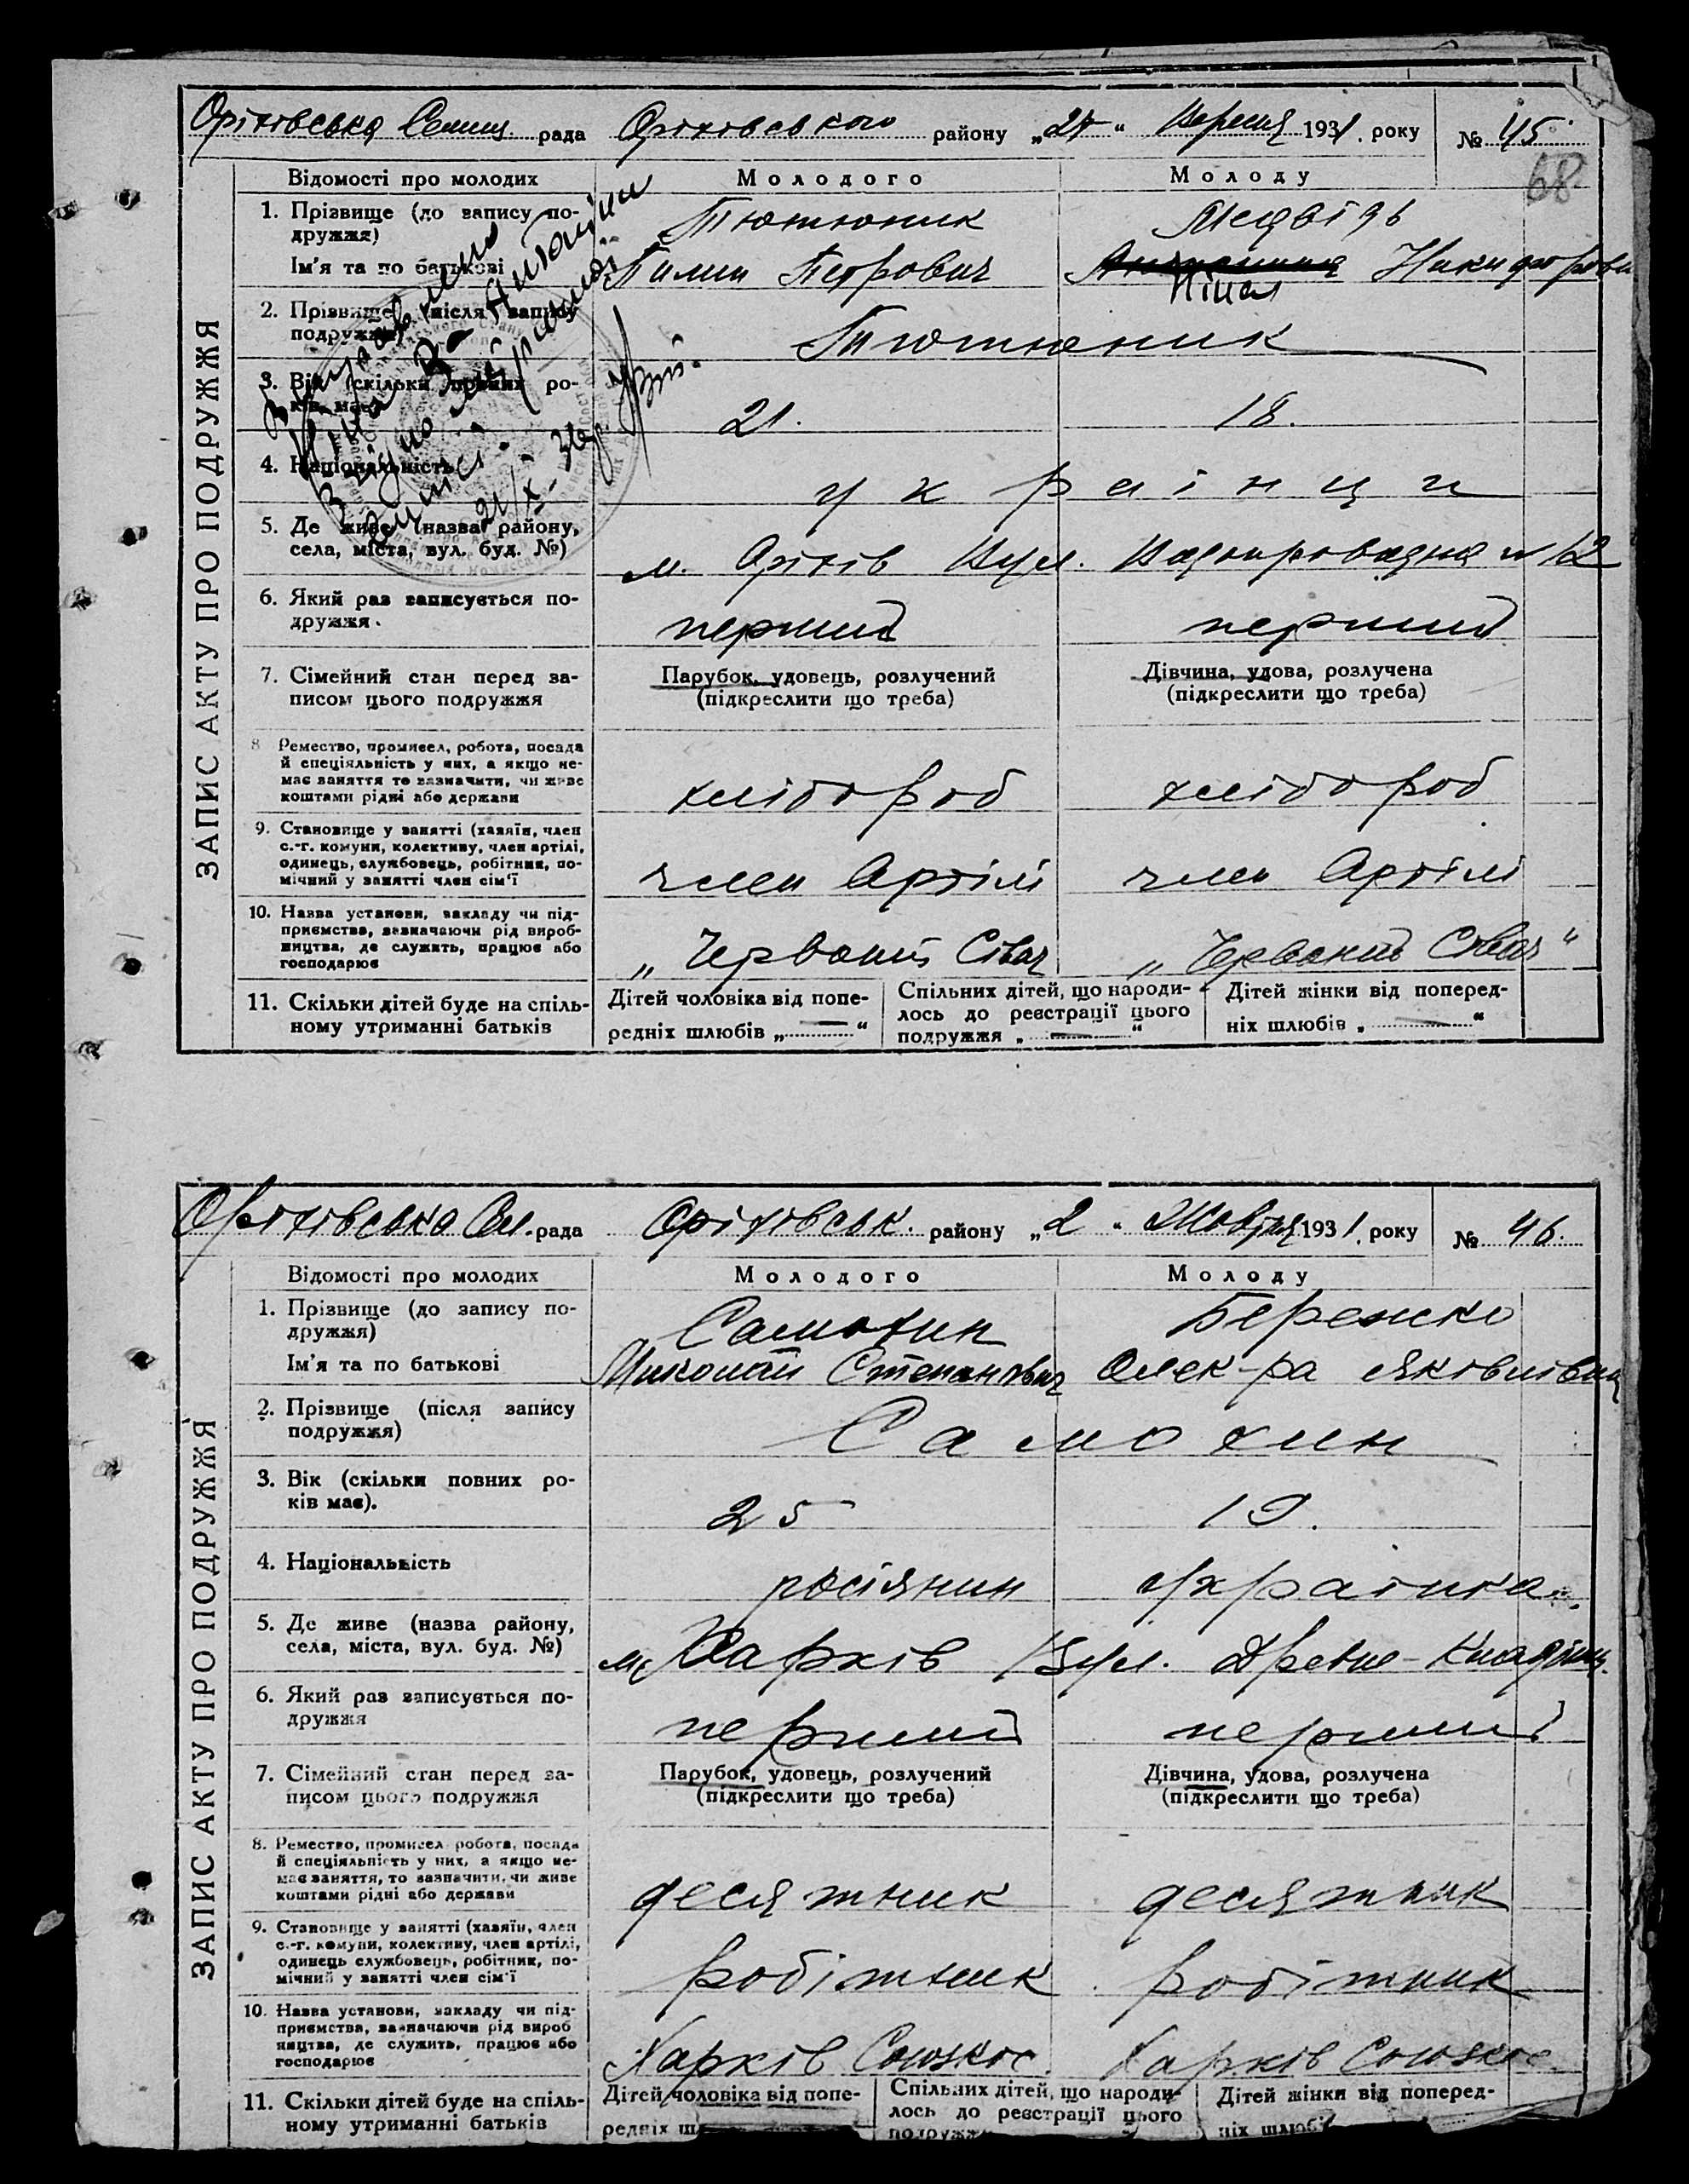 Оріхівська Селищ. рада Оріхівського району „27" Вересня 1931. року № 45.
68
ЗАПИС АКТУ ПРО ПОДРУЖЖЯ
Відомості про молодих Молодого Молоду
1. Прізвище (до запису по-
дружжя) Тютюник Медвідь
Ім'я та по батькові Пилип Петрович Антонина Никифоровн
Ніна
2. Прізвище (після запису
подружжя) Тютюник
3. Вік (скільки повних ро-
ків має) 21. 18.
4. Національність українци
5. Де живе (назва району,
села, міста, вул. буд. №) м. Оріхів Вул. № 12
6. Який раз записується по-
дружжя перший перший
7. Сімейний стан перед за-
писом цього подружжя
Парубок, удовець, розлучений
(підкреслити що треба)
Дівчина, удова, розлучена
(підкреслити що треба)
8 Ремество, промисел, робота, посада
й спеціяльність у них, а якщо не-
має заняття то зазначити, чи живе
коштами рідні або держави
хлібороб хлібороб
9. Становище у занятті (хазяїн, член
с.-г. комуни, колективу, член артілі,
одинець, службовець, робітник, по-
мічний у занятті член сім'ї
член Артілі член Артілі
10. Назва установи, закладу чи під-
приємства, зазначаючи рід вироб-
ництва, де служить, працює або
господарює
„Червоний Сівач „Червоний Сівач"
11. Скільки дітей буде на спіль-
ному утриманні батьків
Дітей чоловіка від попе-
редніх шлюбів „ — "
Спільних дітей, що народи-
лось до реєстрації цього
подружжя „ — "
Дітей жінки від поперед-
ніх шлюбів „ — "
Оріхівська Сел. рада Оріхівськ. району „2" Жовтня 1931. року № 46.
ЗАПИС АКТУ ПРО ПОДРУЖЖЯ
Відомості про молодих Молодого Молоду
1. Прізвище (до запису по-
дружжя) Самохин Бережко
Ім'я та по батькові Миколай Степанович Олек-ра Яківлівна
2. Прізвище (після запису
подружжя) Самохин
3. Вік (скільки повних ро-
ків має). 25 19.
4. Національність росіянин українка.
5. Де живе (назва району,
села, міста, вул. буд. №) м. Харків Вул.
6. Який раз записується по-
дружжя перший перший
7. Сімейний стан перед за-
писом цього подружжя
Парубок, удовець, розлучений
(підкреслити що треба)
Дівчина, удова, розлучена
(підкреслити що треба)
8. Ремество, промисел робота, посада
й спеціяльність у них, а якщо не-
має заняття, то зазначити, чи живе
коштами рідні або держави
десятник десятник
9. Становище у занятті (хазяїн, член
с.-г. комуни, колективу, член артілі,
одинець службовець, робітник, по-
мічний у занятті член сім'ї
робітник робітник
10. Назва установи, закладу чи під-
приємства, зазначаючи рід вироб
ництва, де служить, працює або
господарює
Харків Харків
11. Скільки дітей буде на спіль-
ному утриманні батьків
Дітей чоловіка від попе-
редніх ш
Спільних дітей, що народи-
лось до реєстрації цього
подружж
Дітей жінки від поперед-
ніх шлюбі